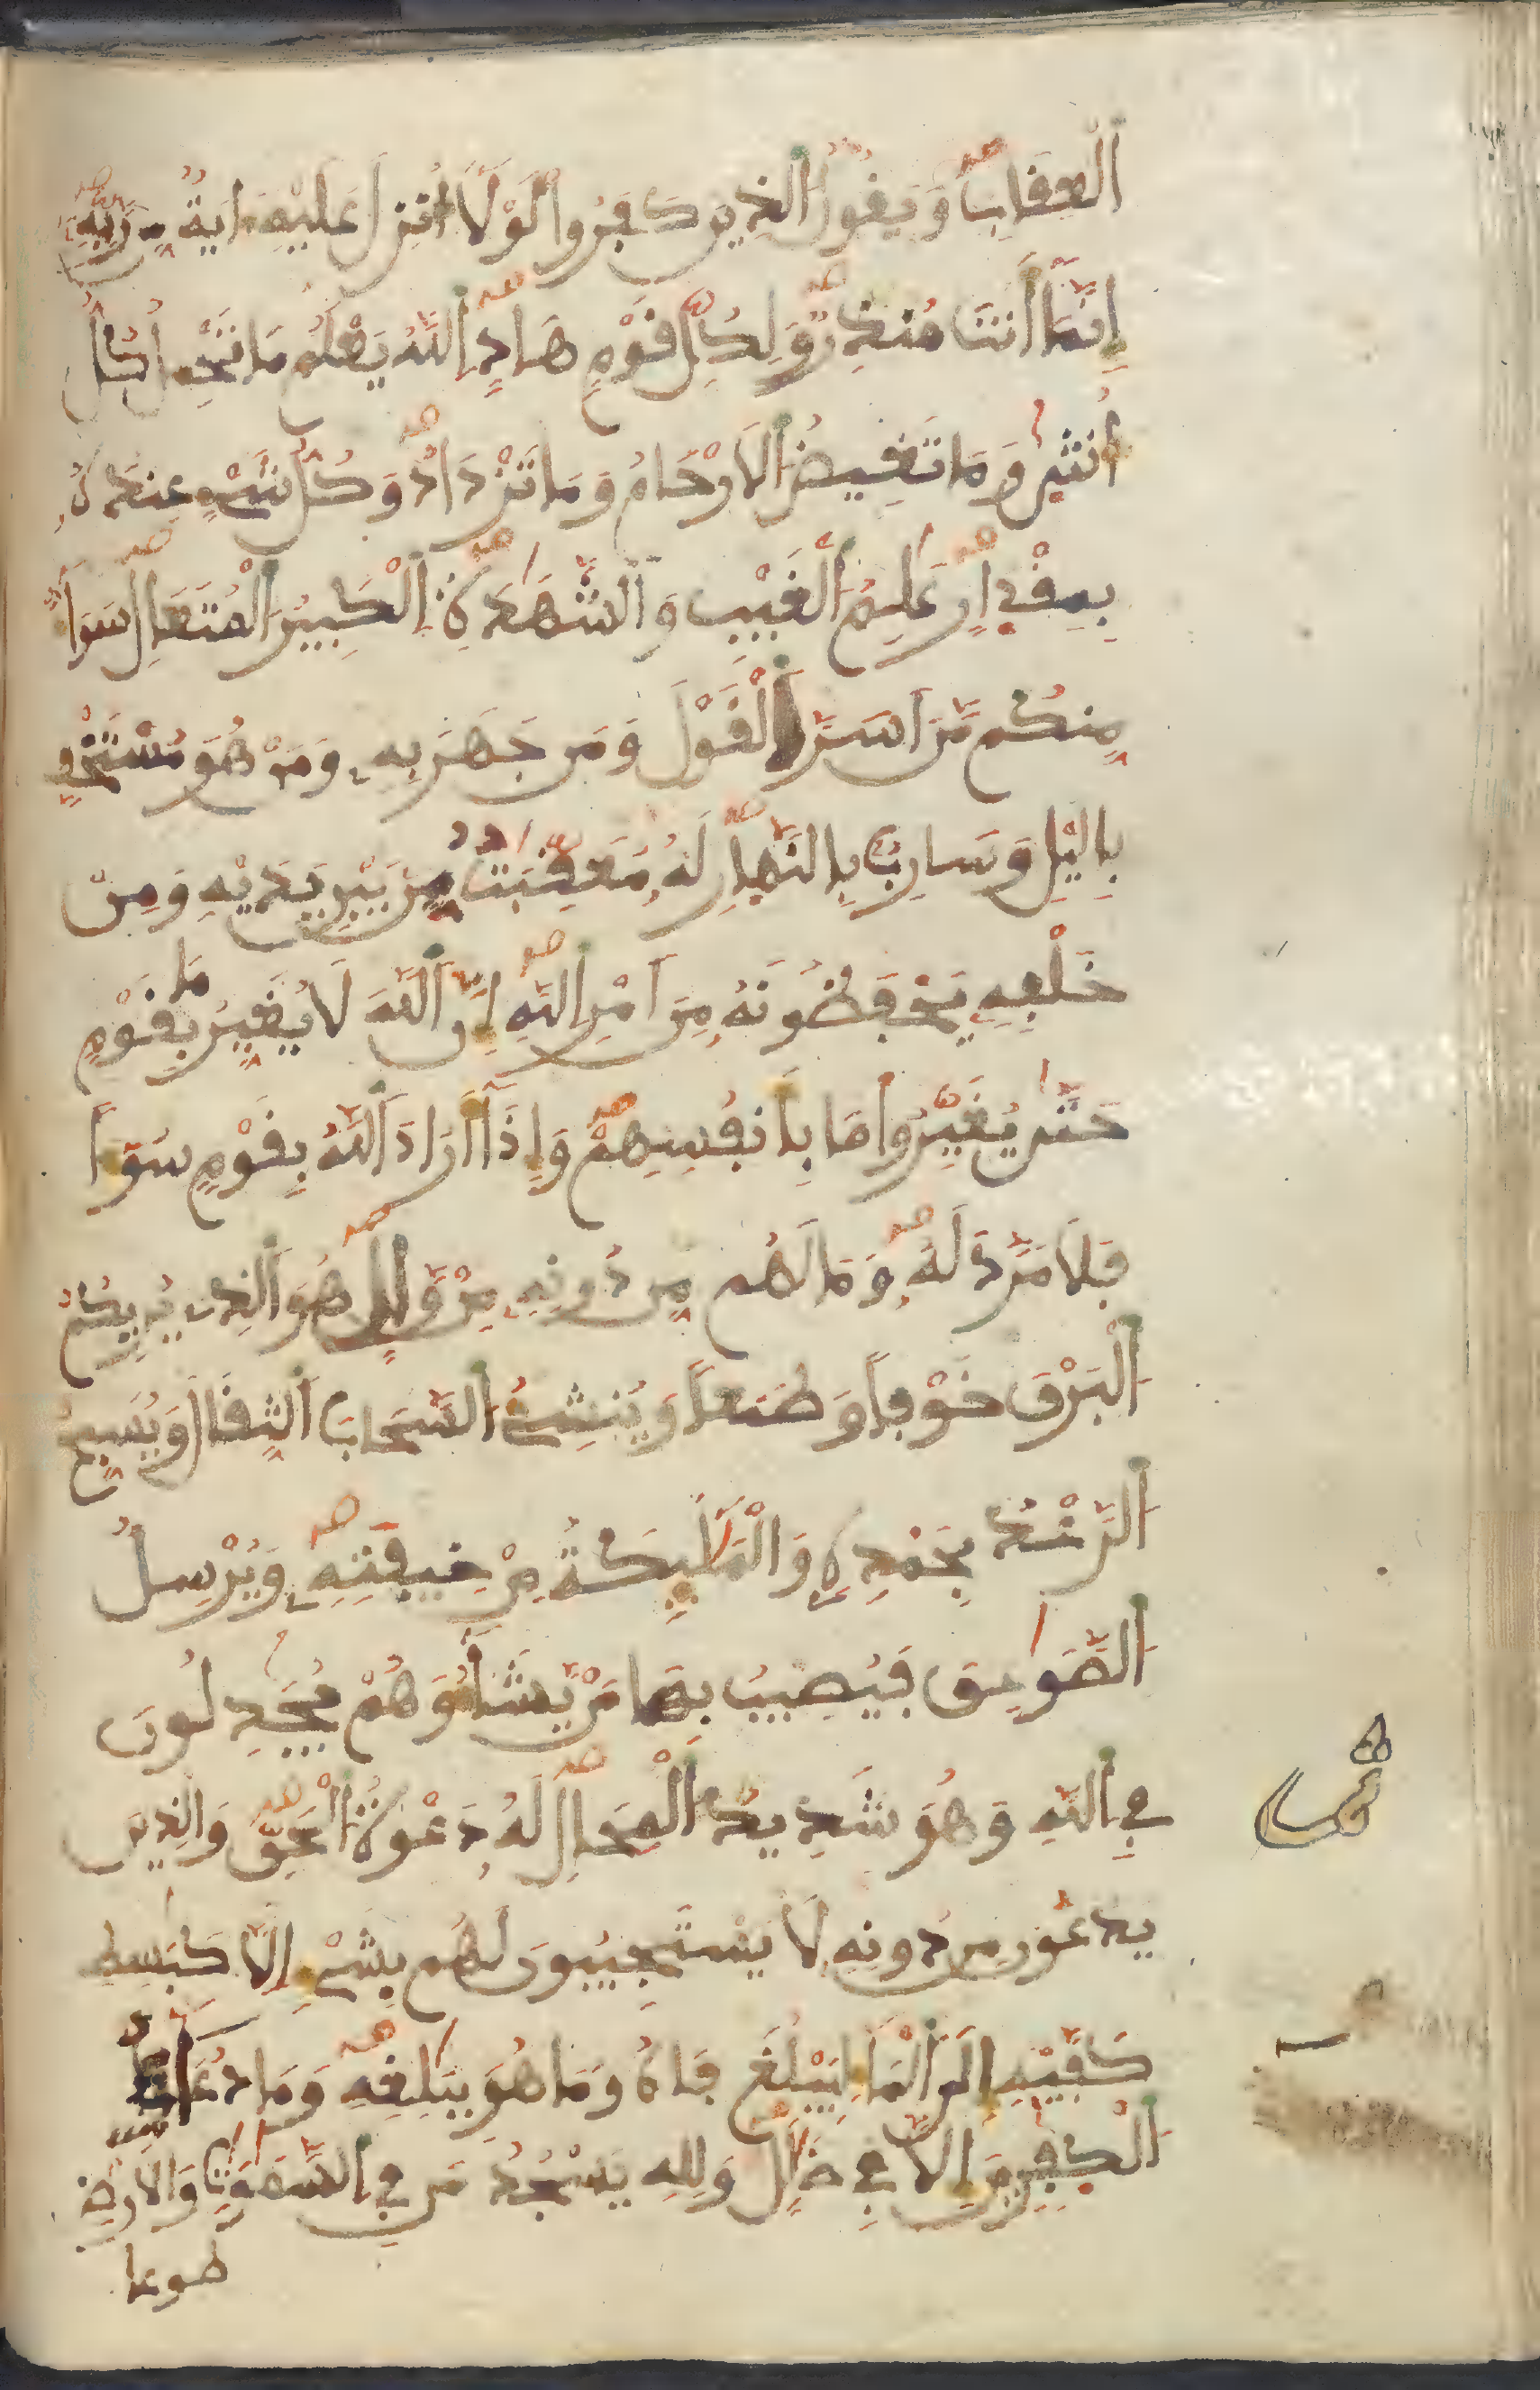 اَ۬لْعِقَابِ وَيَقُولُ اُ۬لذِينَ كَفَرُوا لَوْلَا أُنزِلَ عَلَيْهِ ءَايَةٌ مِّن رَّبِّهِ
إِنَّمَا أَنتَ مُنذِرٌ وَلِكُلِّ قَوْمٍ هَادٍ اِ۬للَّهُ يَعْلَمُ مَا تَحْمِلُ كُلُّ
أُنثىٰ وَمَا تَغِيضُ اُ۬لَارْحَامُ وَمَا تَزْدَادُ وَكُلُّ شَےْءٍ عِندَهُ
بِمِقْدِارٍ عَٰلِمُ اُ۬لْغَيْبِ وَالشَّهَٰدَةِ اِ۬لْكَبِيرُ اُ۬لْمُتَعَالِ سَوَآءٌ
مِّنكُم مَّنَ اَسَرَّ اَ۬لْقَوْلَ وَمَن جَهَرَ بِهِ وَمَنْ هُوَ مُسْتَخْفٍ
بِاليْلِ وَسَارِبٌ بِالنَّهِارِ لَهُ مُعَقِّبَٰتٌ مِّن بَيْنِ يَدَيْهِ وَمِنْ
خَلْفِهِ يَحْفَظُونَهُ مِنَ اَمْرِ اِ۬للَّهِ إِنَّ اَ۬للَّهَ لَا يُغَيِّرُ مَا بِقَوْمٍ
حَتَّىٰ يُغَيِّرُوا مَا بِأَنفُسِهِمْ وَإِذَا أَرَادَ اَ۬للَّهُ بِقَوْمٍ سُوٓءاً
فَلَا مَرَدَّ لَهُ وَمَا لَهُم مِّن دُونِهِ مِنْ وَّالٍ هُوَ اَ۬لذِے يُرِيكُمُ
اُ۬لْبَرْقَ خَوْفاً وَطَمَعاً وَيُنشِئُ اُ۬لسَّحَابَ اَ۬لثِّقَالَ وَيُسَبِّحُ
اُ۬لرَّعْدُ بِحَمْدِهِ وَالْمَلَٰٓئِكَةُ مِنْ خِيفَتِهِ وَيُرْسِلُ
اُ۬لصَّوَٰعِقَ فَيُصِيبُ بِهَا مَنْ يَّشَآءُ وَهُمْ يُجَٰدِلُونَ
فِے اِ۬للَّهِ وَهُوَ شَدِيدُ اُ۬لْمِحَالِ لَهُ دَعْوَةُ اُ۬لْحَقِّ وَالذِينَ
يَدْعُونَ مِن دُونِهِ لَا يَسْتَجِيبُونَ لَهُم بِشَےْءٍ اِلَّا كَبَٰسِطِ
كَفَّيْهِ إِلَى اَ۬لْمَآءِ لِيَبْلُغَ فَاهُ وَمَا هُوَ بِبَٰلِغِهِ وَمَا دُعَآءُ
اُ۬لْكَٰفِرِينَ إِلَّا فِے ضَلَٰلٍ وَلِلهِ يَسْجُدُ مَن فِے اِ۬لسَّمَٰوَٰتِ وَالَارْضِ
طوعا